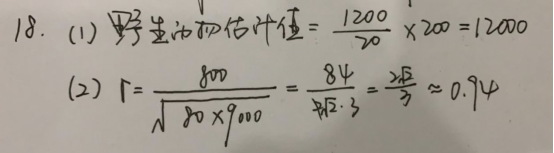 18. (1) 野生动物估计值 = 1200/20 × 200 = 12000
(2) r = 800/√(80×9000) = 84/(√2·3) = 2√2/3 ≈ 0.94